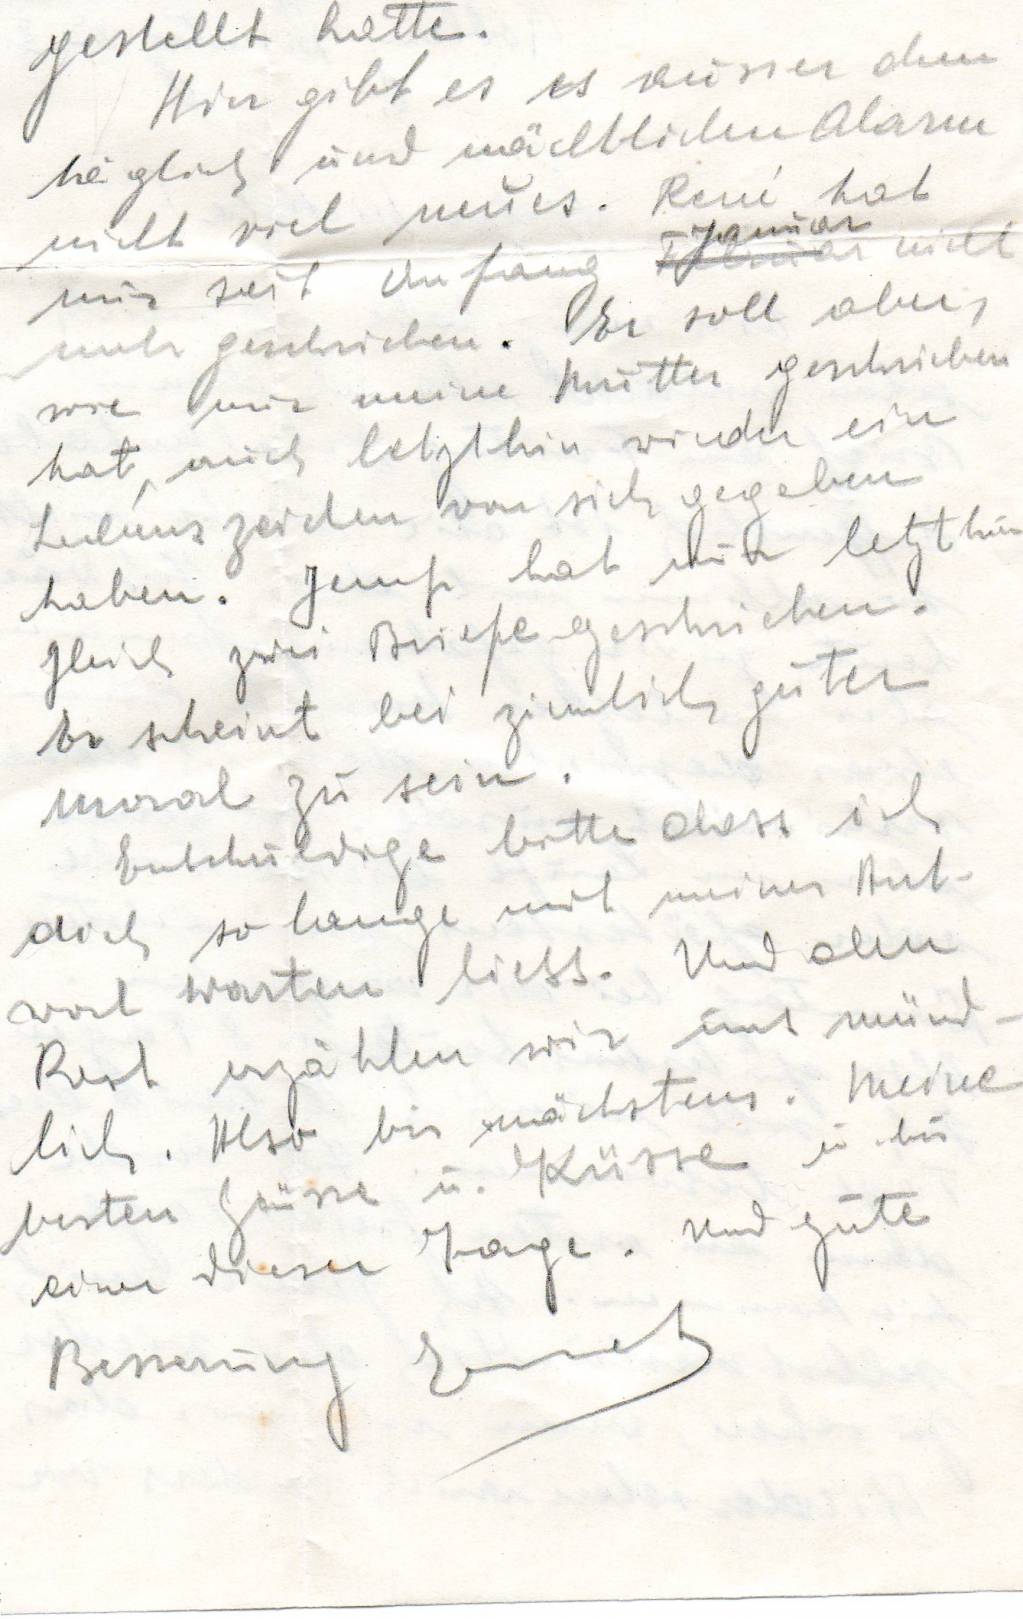 gestellt hatte.
Hier gibt es es ausser dem
täglich und nächtlichen Alarm
nicht viel neues. René hat
Januar
mir seit Anfang Februar nicht
mehr geschrieben. Er soll aber,
wie mir meine Mutter geschrieben
hat, auch letzthin wieder ein
Lebenszeichen von sich gegeben
haben. Jemp hat mir letzthin
gleich zwei Briefe geschrieben.
Er scheint bei ziemlich guter
Moral zu sein.
Entschuldige bitte dass ich
dich so lange mit meiner Ant-
wort warten liess. Und den
Rest erzählen wir uns münd-
lich. Also bis nächstens. Meine
besten Grüsse u. Küsse u bis
einer dieser Tage. Und gute
Besserung Ernest